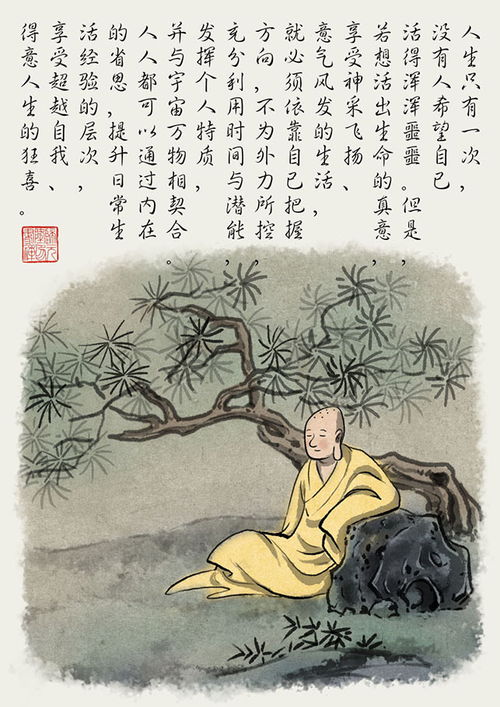 人生只有一次，
没有人希望自己
活得浑浑噩噩。但是，
若想活出生命的真意，
享受神采飞扬、
意气风发的生活，
就必须依靠自己把握
方向，不为外力所控，
充分利用时间与潜能，
发挥个人特质，
并与宇宙万物相契合。
人人都可以通过内在
的省思，提升日常生
活经验的层次，
享受超越自我、
得意人生的狂喜。